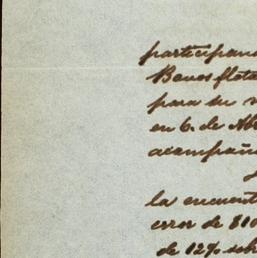 participan
Benos flota
para su
en 6. de Ab
acompañ
la encuent
error de 810
de 12% sob